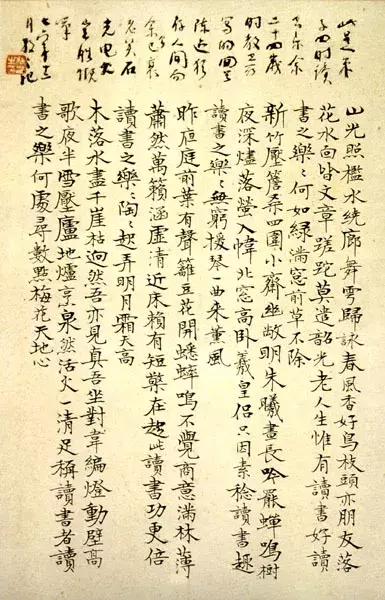 此是朱
子四時讀
書樂余
二十四歲
時教
寫的
陳迹猶
存人間向
余
石
光電火
豈勝慨
山光照檻水繞廊舞雩歸詠春風香好鳥枝頭亦朋友落
花水向皆文章蹉跎莫遣韶光老人生惟有讀書好讀
書之樂〻何如綠滿窓前草不除
新竹壓簷桑四圍小齋幽敞明朱曦晝長吟罷蟬鳴樹
夜深燼落螢入幃北窓高卧羲皇侶只因素稔讀書趣
讀書之樂〻無窮援琴一曲來薰風
昨夜庭前葉有聲籬豆花開蟋蟀鳴不覺商意滿林薄
蕭然萬籟涵虛清近床賴有短檠在趁此讀書功更倍
讀書之樂〻陶〻起弄明月霜天高
木落水盡千崖枯迥然吾亦見真吾坐對韋編燈動壁高
歌夜半雪壓廬地爐烹泉然活火一清足稱讀書者讀
書之樂何處尋數點梅花天地心